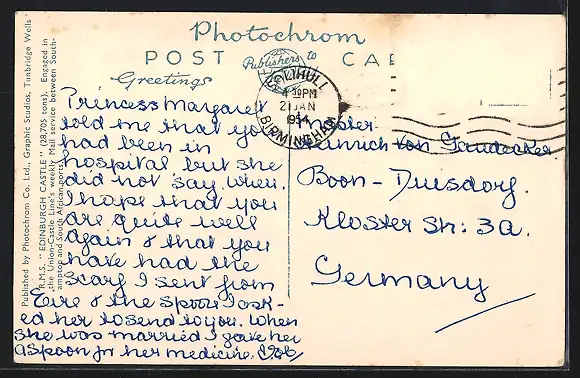 Photochrom
POST CAR
Publishers to
Greetings
SOLIHULL
4 30PM
21 JAN
1954
BIRMINGHAM
Published by Photochrom Co. Ltd., Graphic Studios, Tunbridge Wells
R.M.S. "EDINBURGH CASTLE" (28,705 tons). Engaged in
the Union-Castle Line's weekly Mail service between South-
ampton and South African ports.
Princess Margaret
told me that you
had been in
hospital but she
did not say when.
I hope that you
are quite well
again & that you
have had the
scarf I sent from
Eire & the spoon I ask-
ed her to send to you. When
she was married I gave her
a spoon for her medicine.
Master
Heinrich von
Bonn - Duisdorf.
Kloster Str: 3a.
Germany